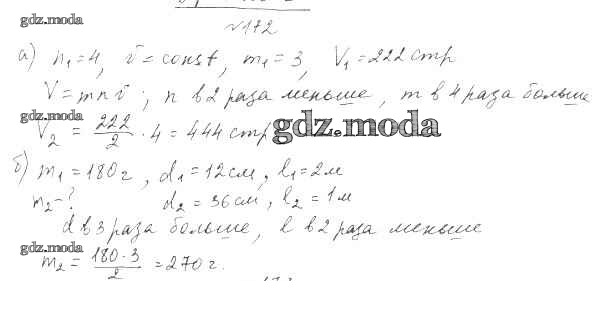 gdz.moda
№172
а) n₁=4, v̄=const, m₁=3, V₁=222 стр
V=mnv̄; n в 2 раза меньше, m в 4 раза больше
gdz.moda
V₂ = 222/2 · 4 = 444 стр
gdz.moda
б) m₁=180г, d₁=12см, l₁=2м
m₂-? d₂=36см, l₂=1м
d в 3 раза больше, l в 2 раза меньше
gdz.moda
m₂ = 180·3/2 = 270г.